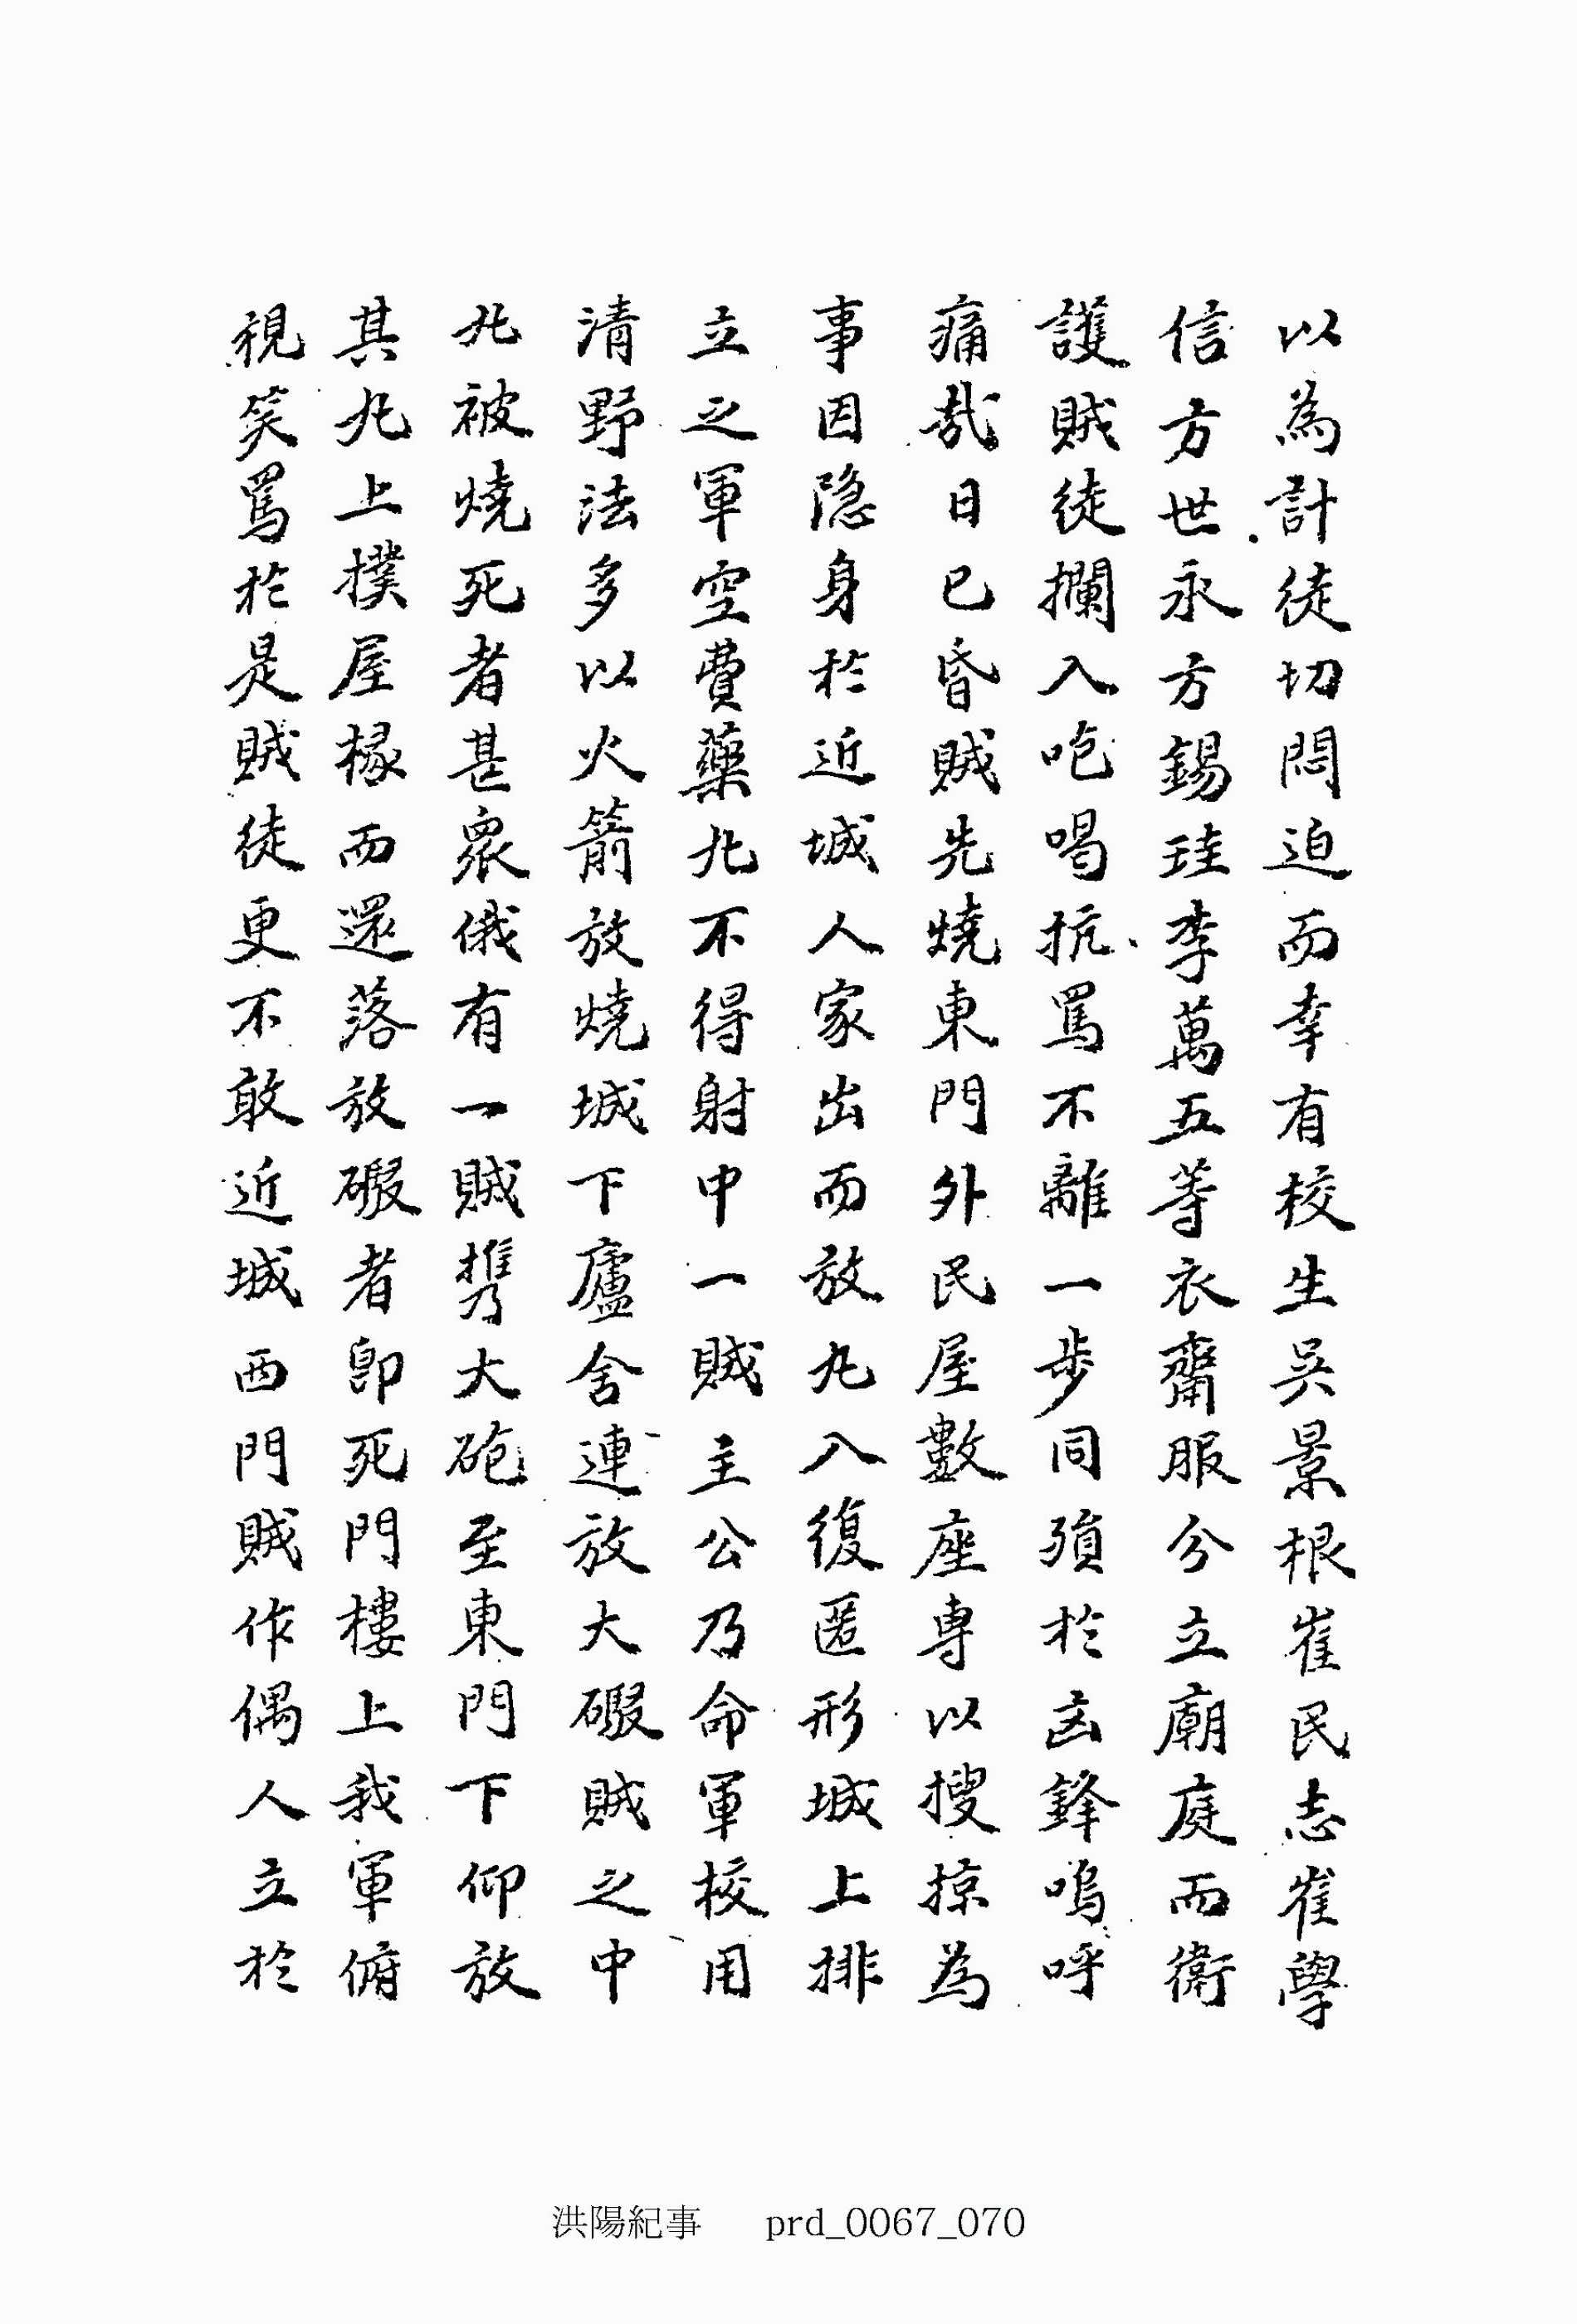 以為計徒切悶迫而幸有校生吳景根崔民志崔學
信方世永方錫珪李萬五等衣齋服分立廟庭而衛
護賊徒攔入咆喝抗罵不離一步同殞於凶鋒嗚呼
痛哉日已昏賊先燒東門外民屋數座専以搜掠為
事因隐身於近城人家出而放丸入復匿形城上排
立之軍空費藥丸不得射中一賊主公乃命軍校用
清野法多以火箭放燒城下廬舍連放大碬賊之中
丸被燒死者甚衆俄有一賊携大砲至東門下仰放
其丸上撲屋椽而還落放碬者卽死門樓上我軍俯
視笑罵於是賊徒更不敢近城西門賊作偶人立於
洪陽紀事 prd_0067_070